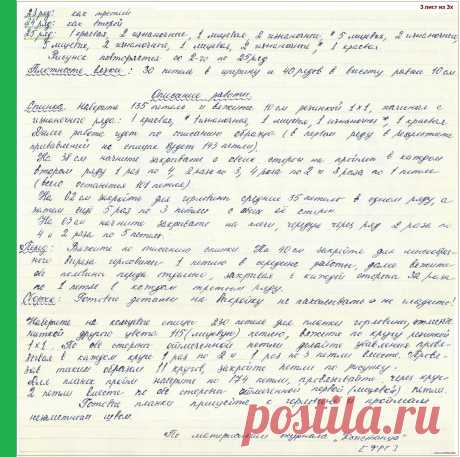 3 лист из 3х
23 ряд: как третий
24 ряд: как второй
25 ряд: 1 краевая, 2 изнаночные, 1 лицевая, 2 изнаночные, * 5 лицевых, 2 изнаночные,
5 лицевых, 2 изнаночные, 1 лицевая, 2 изнаночные * 1 краевая
Рисунок повторяется со 2-го по 25 ряд
Плотность вязки: 30 петель в ширину и 40 рядов в высоту равно 10 см.
Описание работы.
Спинка. Наберите 135 петель и вяжите 10 см резинкой 1×1, начиная с
изнаночного ряда: 1 краевая, * 1 изнаночная, 1 лицевая, 1 изнаночная *, 1 краевая
Далее работа идет по описанию образца (в первом ряду в результате
прибавлений на спинке будет 143 петли)
На 38 см начните закрывать с обеих сторон на проймы в каждом
втором ряду 1 раз по 4, 2 раза по 3, 4 раза по 2 и 3 раза по 1 петле
(всего останется 101 петля)
На 62 см закройте для горловины средние 35 петель в одном ряду, а
затем ещё 5 раз по 3 петли с обеих её сторон
На 63 см начните закрывать на плечи, чередуя через ряд 2 раза по
4 и 2 раза по 5 петель.
Перед: Вяжите по описанию спинки. На 40 см закройте для
выреза горловины 1 петлю в середине работы, далее вяжите
обе половины переда отдельно, закрывая с каждой стороны 32 раза
по 1 петле в каждом третьем ряду.
Сборка: Готовые детали на выкройку не накалывайте и не гладьте!
Наберите на кольцевые спицы 230 петель для планки горловины, отметьте
ниткой другого цвета 115 (лицевую) петлю, вяжите по кругу резинкой
1×1. По обе стороны отмеченной петли делайте убавления
в каждом круге 1 раз по 2 и 1 раз по 3 петли вместе.
таким образом 11 кругов, закройте петли по рисунку.
Для планок пройм наберите по 174 петли, провязывайте через круг
2 петли вместе по обе стороны отмеченной первой (лицевой) петли.
Готовые планки пришейте к горловине и проймам
незаметным швом.
По материалам журнала "Констанца"
(ФРГ)
postila.ru